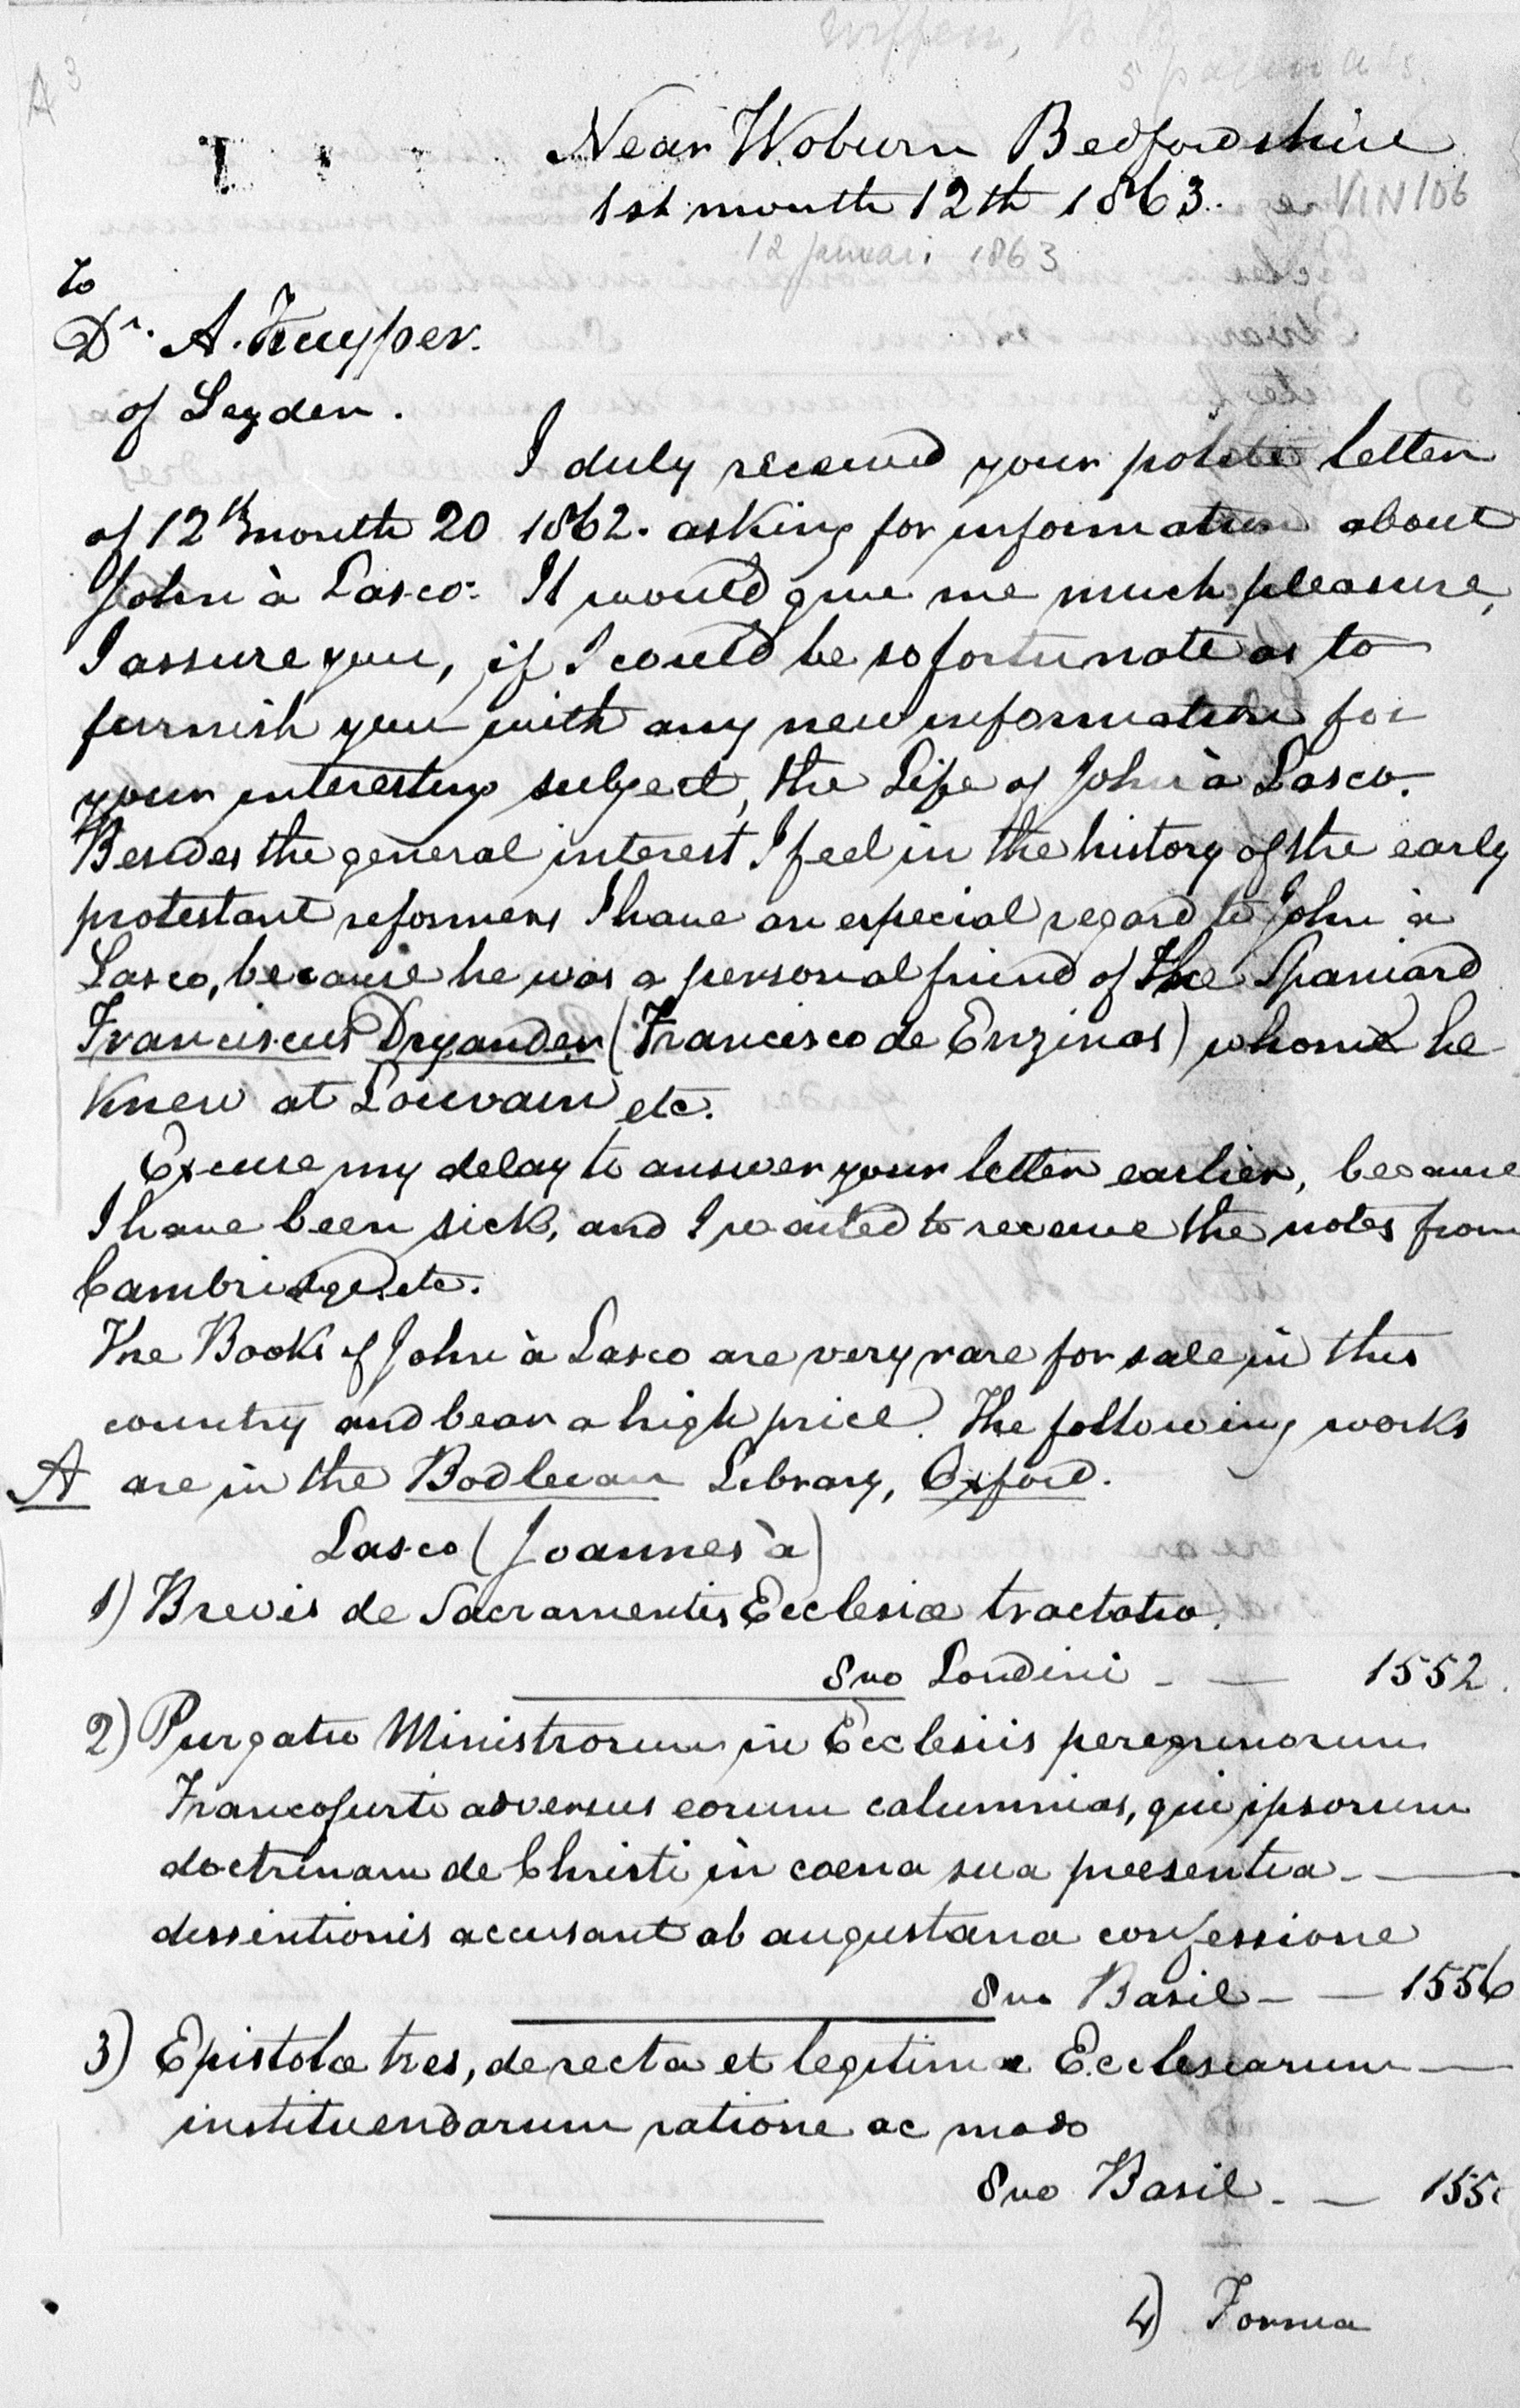 Wiffen, B. B.
5 pagina's.
A 3
Near Woburn Bedfordshire
1st month 12th 1863.
VIN 106
12 Januari 1863
To
Dr. A. Kuyper.
of Leyden.
I duly received your polite letter
of 12th month 20 1862. asking for information about
John à Lasco. It would give me much pleasure,
I assure you, if I could be so fortunate as to
furnish you with any new information for
your interesting subject, the Life of John à Lasco.
Besides the general interest I feel in the history of the early
protestant reformers I have an especial regard to John à
Lasco, because he was a personal friend of the Spaniard
Franciscus Dryander (Francisco de Enzinas) whom he
knew at Louvain etc.
Excuse my delay to answer your letter earlier, because
I have been sick, and I waited to receive the notes from
Cambridge etc.
The Books of John à Lasco are very rare for sale in this
country and bear a high price. The following works
A are in the Bodleian Library, Oxford.
Lasco (Joannes à)
1) Brevis de Sacramentis Ecclesiæ tractatio.
8vo Londini - — 1552.
2) Purgatio Ministrorum in Ecclesiis peregrinorum
Francofurti adversus eorum calumnias, qui ipsorum
doctrinam de Christi in coena sua præsentia - —
dissentionis accusant ab augustana confessione
8vo Basil - — 1556
3) Epistolæ tres, de recta et legitima Ecclesiarum —
instituendarum ratione ac modo
8vo Basil - — 155
4) Forma